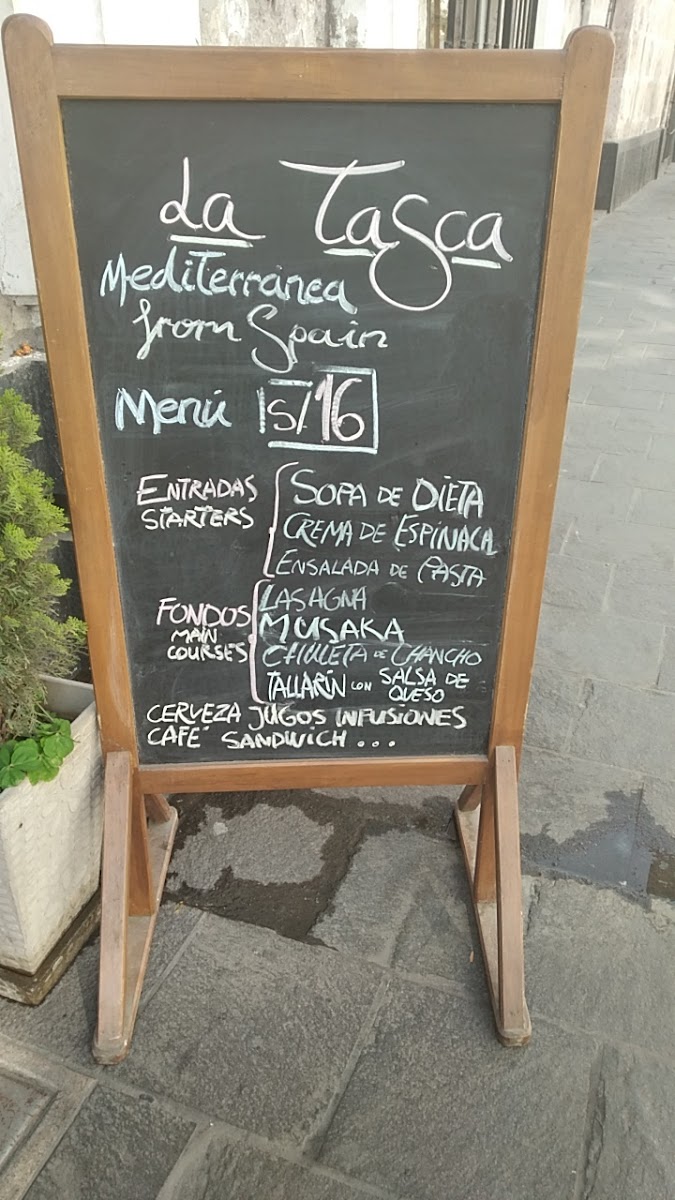 La Tasca
Mediterránea
from Spain
Menú S/16
ENTRADAS
STARTERS
SOPA DE DIETA
CREMA DE ESPINACA
ENSALADA DE PASTA
FONDOS
MAIN
COURSES
LASAGNA
MUSAKA
CHULETA DE CHANCHO
TALLARIN CON SALSA DE
QUESO
CERVEZA JUGOS INFUSIONES
CAFÉ SANDWICH ...